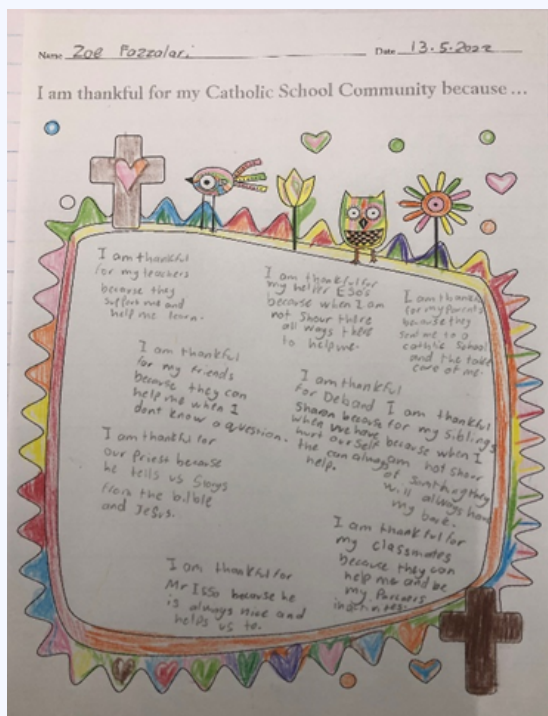 Name Zoe Fazzolari Date 13.5.2022
I am thankful for my Catholic School Community because ...
I am thankful
for my teachers
because they
support me and
help me learn.
I am thankful for
my helper ESO's
because when I am
not shour there
all ways there
to help me.
I am thankful
for my Parents
because they
send me to a
catholic School
and the take
care of me.
I am thankful
for my friends
because they can
help me when I
dont know a question.
I am thankful
for Deb and
Sharon because
when we have
hurt our self
the can always
help.
I am thankful
for my siblings
because when I
am not shour
of somthing they
will always have
my back.
I am thankful for
our Priest because
he tells us storys
from the bilble
and Jesus.
I am thankful for
my classmates
because they can
help me and be
my Partners
I am thankful for
Mr Isso because he
is always nice and
helps us to.